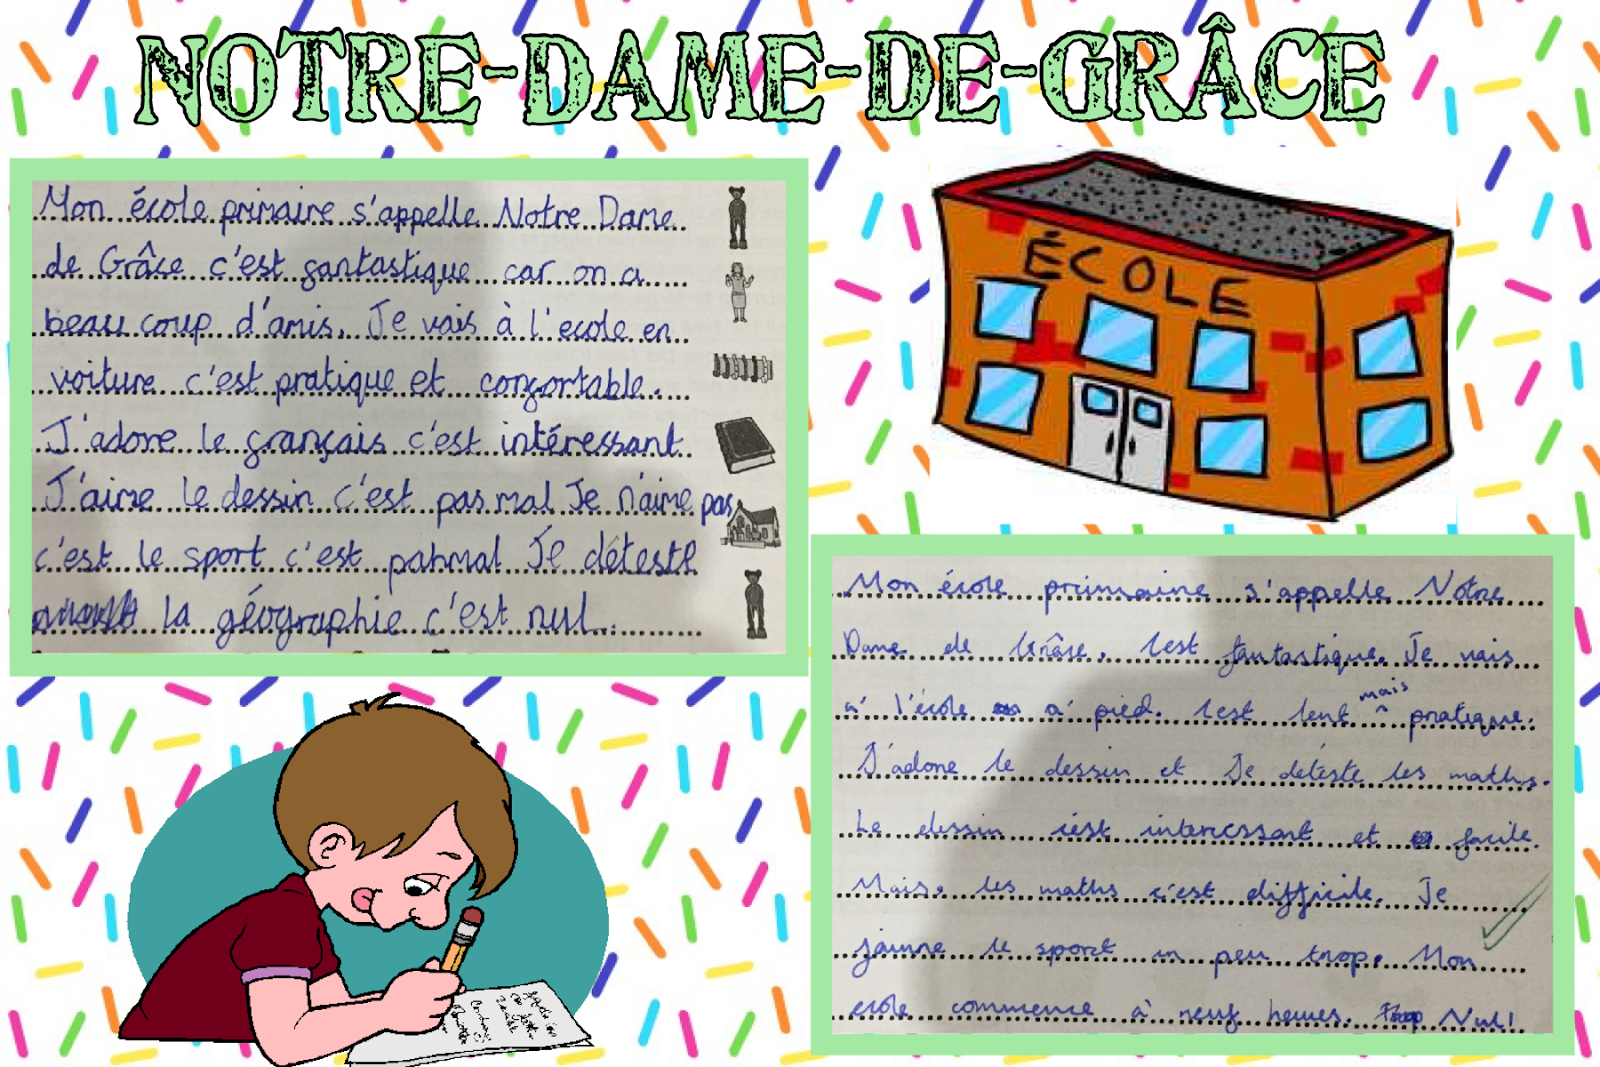 NOTRE-DAME-DE-GRÂCE
Mon école primaire s'appelle Notre Dame
de Grâce c'est fantastique car on a
beau coup d'amis. Je vais à l'ecole en
voiture c'est pratique et confortable.
J'adore le français c'est intéressant
J'aime le dessin c'est pas mal Je n'aime pas
c'est le sport c'est pahmal Je déteste
la géographie c'est nul.
ÉCOLE
Mon école primaire s'appelle Notre
Dame de Grâce. C'est fantastique. Je vais
a' l'école a' pied. C'est lent mais pratique.
J'adore le dessin et Je déteste les maths.
Le dessin c'est interessant et facile.
Mais, les maths c'est difficile. Je
j'aime le sport un peu trop. Mon
ecole commence à neuf heures. Nul!